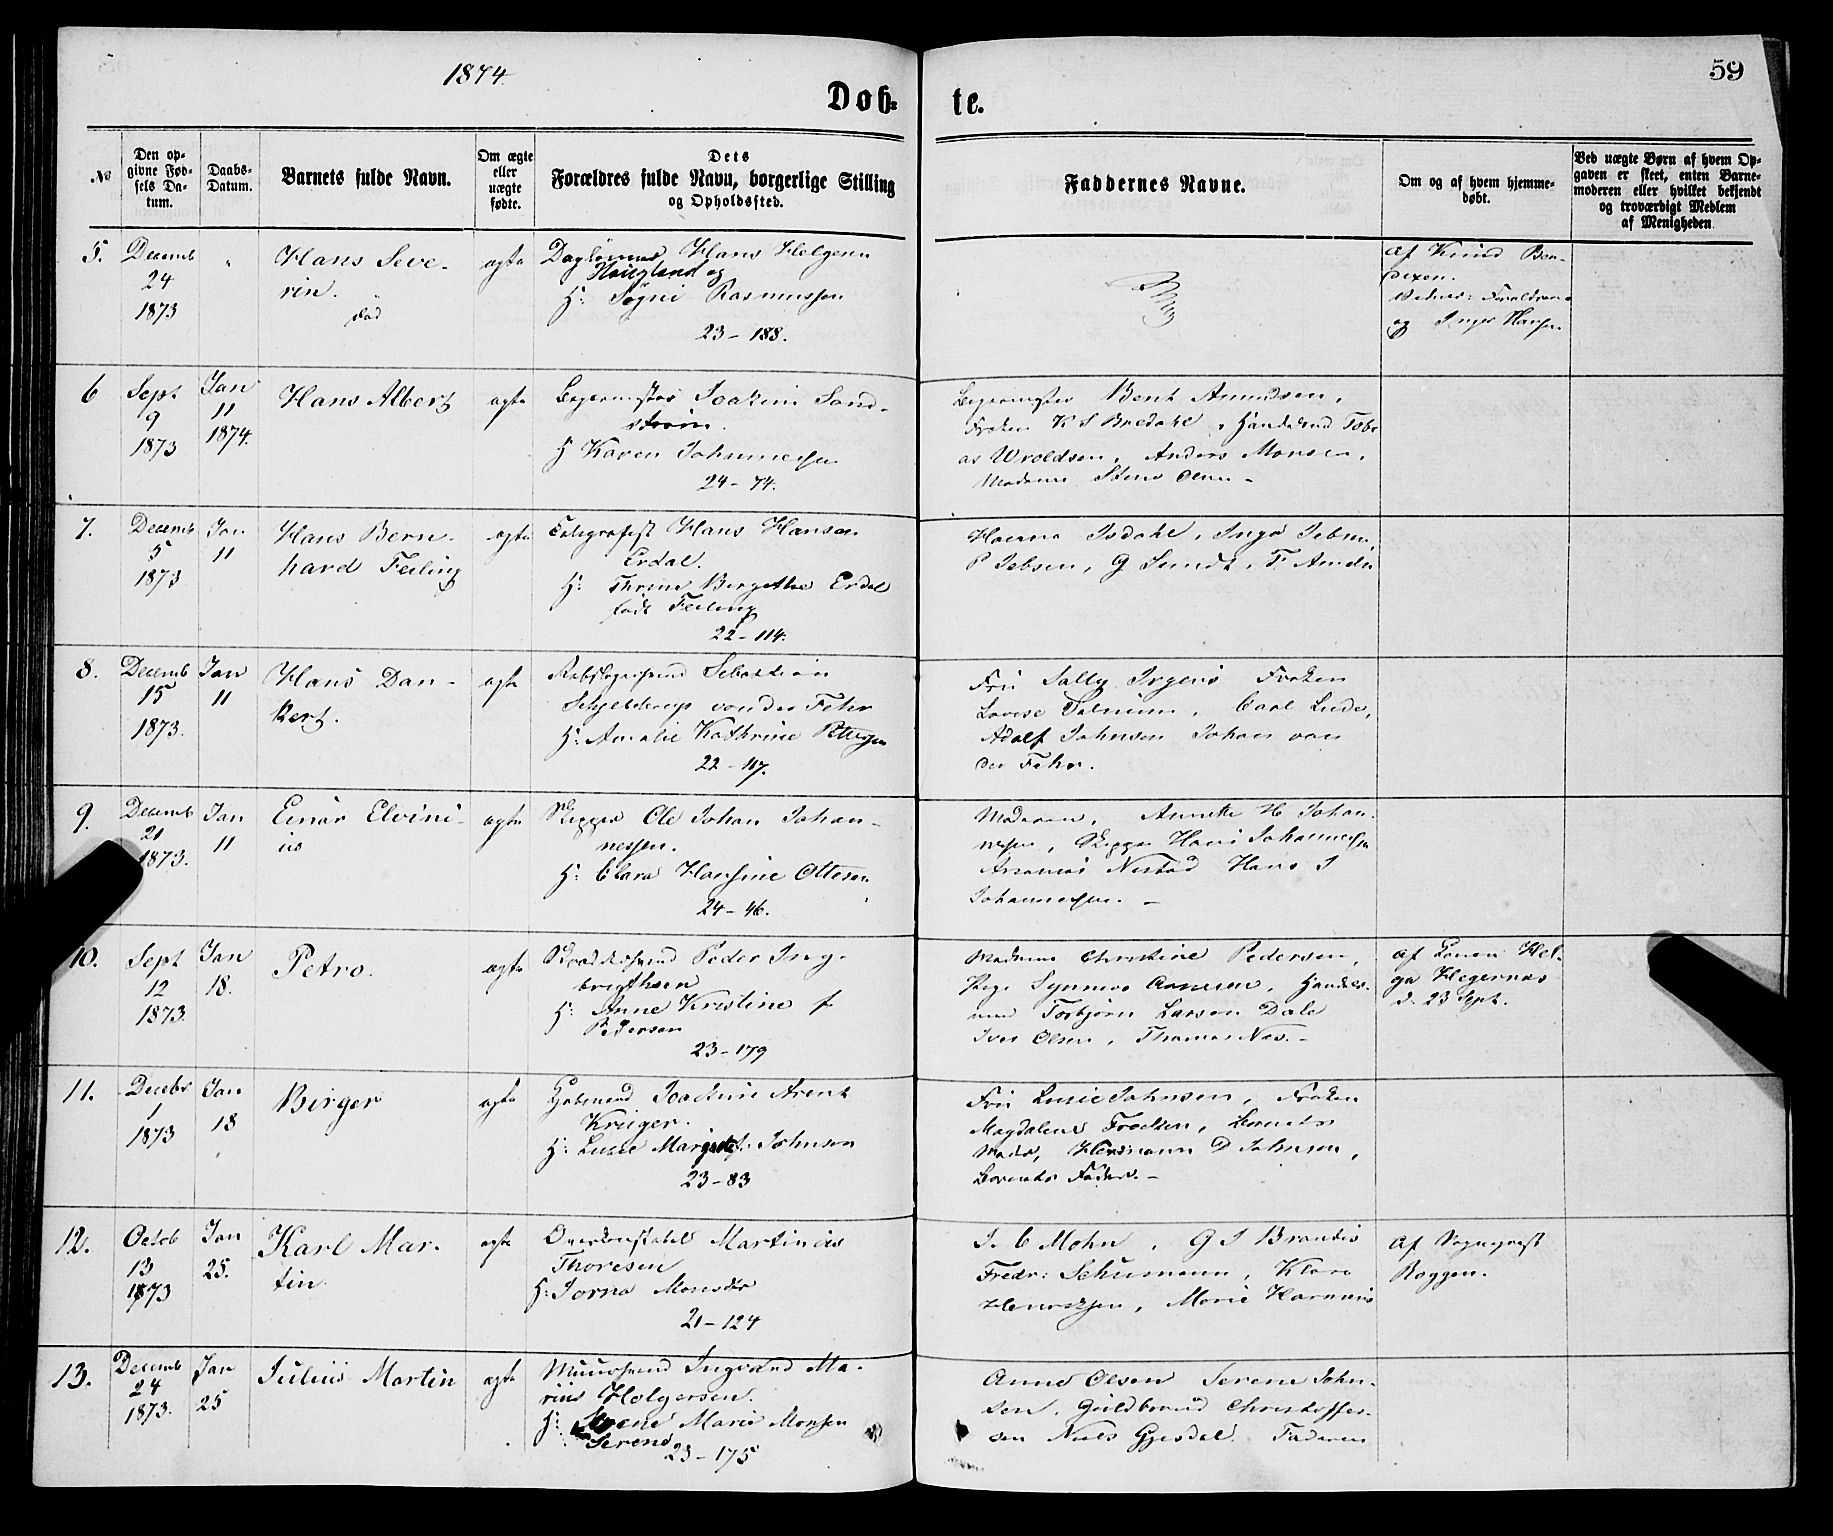 1874.
59
Døb-
te.
No
Den op-
givne Fød-
sels Da-
tum.
Daabs-
Datum.
Barnets fulde Navn.
Om ægte
eller
uægte
fødte.
Dets
Forældres fulde Navn, borgerlige Stilling
og Opholdssted.
Faddernes Navne.
Om og af hvem hjemme-
døbt.
Ved uægte Børn af hvem Op-
gaven er skeet, enten Barne-
moderen eller hvilket bekjendt
og troværdigt Medlem
af Menigheden.
5.
Decemb
24
1873
"
Hans Seve-
rin.
død
ægte
Hans Helgesen
Haugland og
H: Rasmussen
23-188.
af Knud Ben-
dixen.
Forældrene
og Inger Hansen
6
Sept
9
1873
Jan
11
1874.
Hans Albert
ægte
Joakim Sand-
strøm.
H Karen Johannessen
24-74.
Bernt Amundsen,
Frøken K S Bredahl, Handelsmd Tobi
as Wroldsen, Anders Monsen,
Madame Olsen -
7.
Decemb
5
1873
Jan
11
Hans Bern-
hard Feiling
ægte
Telegrafist Hans Hansen
Erdal.
H: Thrine Bergethe Erdal
født Feiling
22-114.
Isdahl, Inga Jebsen,
P Jebsen, G Sundt, F
8.
Decemb
15
1873.
Jan
11
Hans Dan-
kert.
ægte
Sebastian
Schjelderup von der Fehr
H: Amalie Kathrine Pettersen
22-117.
Fru Sally Irgens Frøken
Lovise Carl
Adolf Johnsen Johan von
der Fehr.
9.
Decemb
21
1873.
Jan
11
Einar Elvini-
us
ægte
Skipper Ole Johan Johan-
nessen.
H: Clara Hansine Ottesen
24-46.
Moderen, Annette H Johan-
nessen, Skipper Hans Johannessen
Nestad Hans J
Johannessen. -
10.
Sept
12
1873.
Jan
18.
Petro.
ægte
Peder Ing-
brigthsen
H: Anne Kristine f
Pedersen
23-179
Madame Christine Pedersen,
Pige Synneve Handels-
md Torbjørn Larsen Dale
Iver Olsen, Thomas Næs. -
af Konen Hel-
ga Hegernæs
d. 23 Sept.
11.
Decebr
1
1873
Jan
18
Birger
ægte
Joachim Arent
Krüger.
H: Lucie Margrete f. Johnsen
23-83
Fru Lucie Johnsen, Frøken
Magdalene Troelsen, Barnets
Moder, Herrmann D Johnsen,
Barnets Fader. -
12.
Octob
13
1873
Jan
25.
Karl Mar-
tin.
ægte
Overkonstabel Martinius
Thoresen
H: Jorna Monsdtr
21-124
J. C Mohn, G J Brandis
Fredr: Schumann, Klara
Henriksen, Marie
Af Sognepræst
Roggen.
13.
Decemb
24
1873.
Jan
25
Julius Martin
ægte
Muursvend Ingvard Ma-
rius Holgersen.
H: Marie Monsen
Serene
23-175
Anne Olsen Serene John-
sen, Guldbrand Christoffer-
sen Niels Gjesdal. Faderen